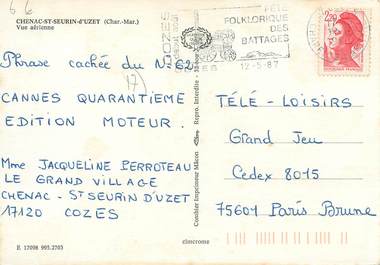 6 6
CHENAC-ST-SEURIN-d'UZET (Char.-Mar.)
Vue aérienne
FÊTE
FOLKLORIQUE
DES
BATTAGES
12-5-87
2,20
Phrase cachée du N° 62
17)
CANNES QUARANTIEME
EDITION MOTEUR.
Mme JACQUELINE PERROTEAU
LE GRAND VILLAGE
CHENAC - St SEURIN D'UZET
17120 COZES
E 17098 995.2703
Combier Imprimeur Mâcon
Repro. Interdite
cimcrome
TÉLÉ - LOISIRS
Grand Jeu
Cedex 8015
75601 Paris Brune